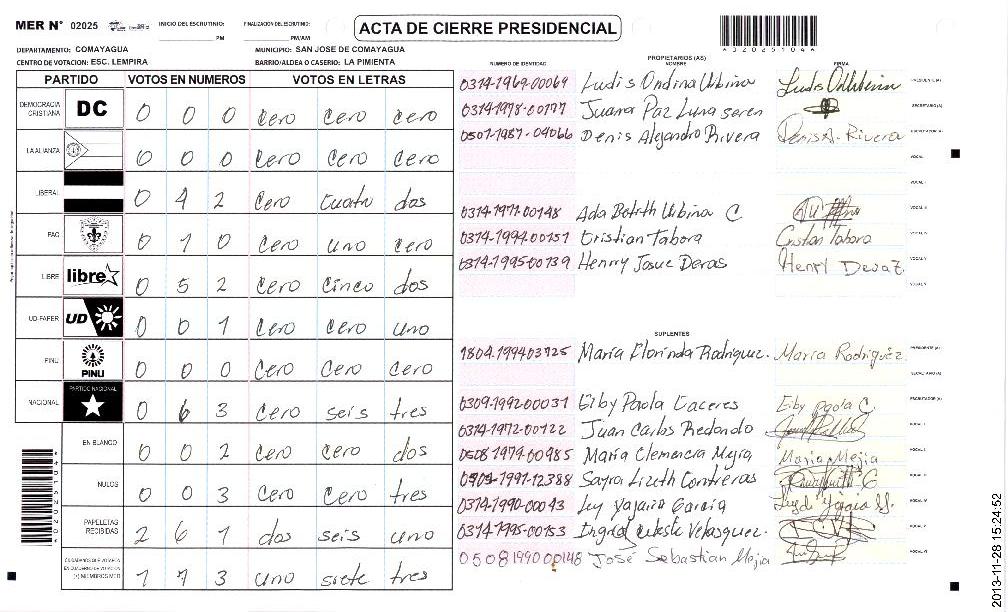 MER N° 02025 INICIO DEL ESCRUTINIO: PM FINALIZACION DEL ESCRUTINIO: PM/AM ACTA DE CIERRE PRESIDENCIAL
DEPARTAMENTO: COMAYAGUA MUNICIPIO: SAN JOSE DE COMAYAGUA
CENTRO DE VOTACION: ESC. LEMPIRA BARRIO/ALDEA O CASERIO: LA PIMIENTA
PARTIDO VOTOS EN NUMEROS VOTOS EN LETRAS
DEMOCRACIA CRISTIANA DC 0 0 0 Cero Cero Cero
LA ALIANZA 0 0 0 Cero Cero Cero
LIBERAL 0 4 2 Cero Cuatro dos
PAC 0 1 0 Cero uno Cero
LIBRE libre 0 5 2 Cero Cinco dos
UD-FAPER UD 0 0 1 Cero Cero uno
PINU PINU 0 0 0 Cero Cero Cero
NACIONAL PARTIDO NACIONAL 0 6 3 Cero seis tres
EN BLANCO 0 0 2 Cero Cero dos
NULOS 0 0 3 Cero Cero tres
PAPELETAS RECIBIDAS 2 6 1 dos seis uno
(+) MIEMBROS MER 1 7 3 uno siete tres
PROPIETARIOS (AS)
NUMERO DE IDENTIDAD NOMBRE FIRMA
0314-1969-00069 Ludis Ondina Urbina PRESIDENTE (A)
0314-1978-00177 Juana Paz Luna SECRETARIO (A)
0501-1987-04066 Denis Alejandro Rivera Denis A. Rivera ESCRUTADOR (A)
VOCAL
VOCAL I
0314-1971-00148 Ada Urbina C
0314-1994-00151 Cristian Tabora Cristian Tabora
0314-1995-00139 Henry Josue Deras Henry
VOCAL V
SUPLENTES
1804-1994-03725 Maria Florinda Rodriguez. Maria Rodriguez. PRESIDENTE (A)
SECRETARIO (A)
0309-1992-00031 Elby Paola Caceres Elby Paola C ESCRUTADOR (A)
0314-1972-00122 Juan Carlos Redondo
0508-1974-00985 Maria Clemencia Mejia Maria Mejia
0504-1991-12388 Sayra Lizeth Contreras
0314-1990-00043 Garcia
0314-1995-00153 Ingrid Celeste Velasquez.
0508 1990 00148 José Sebastian Mejia
2013-11-28 15:24:52